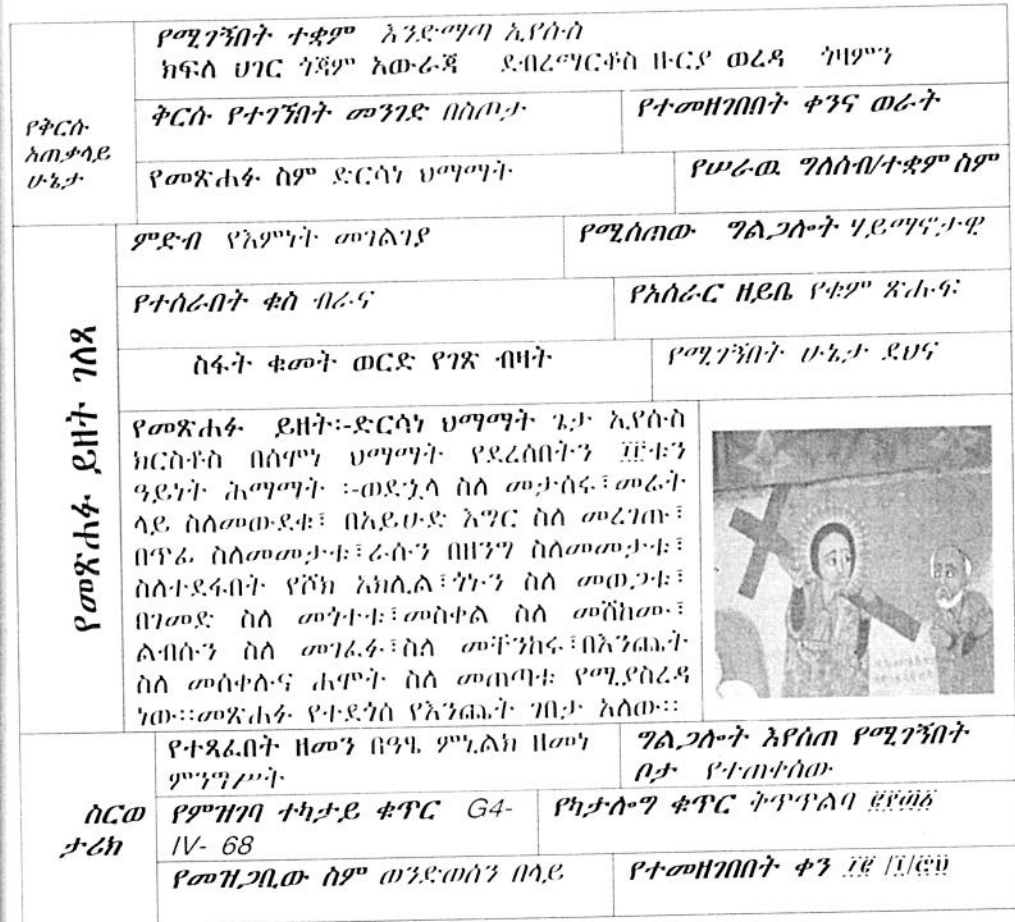 የሚገኝበት ተቋም እንድማጣ ኢየሱስ
ክፍለ ሀገር ጎጃም አውራጃ ደብረማርቆስ ዙርያ ወረዳ ጎዛምን
የቅርሱ አጠቃላይ ሁኔታ
ቅርሱ የተገኘበት መንገድ በስጦታ
የተመዘገበበት ቀንና ወራት
የመጽሐፉ ስም ድርሳነ ህማማት
የሠራዉ ግለሰብ/ተቋም ስም
የመጽሐፉ ይዘት ገለጻ
ምድብ የእምነት መገልገያ
የሚሰጠው ግልጋሎት ሃይማኖታዊ
የተሰራበት ቁስ ብራና
የአሰራር ዘይቤ የቁም ጽሑፍ
ስፋት ቁመት ወርድ የገጽ ብዛት
የሚገኝበት ሁኔታ ደህና
የመጽሐፉ ይዘት:-ድርሳነ ህማማት ጌታ ኢየሱስ
ክርስቶስ በሰሞነ ህማማት የደረሰበትን ፲፫ቱን
ዓይነት ሕማማት :-ወደኋላ ስለ መታሰሩ፣መሬት
ላይ ስለመውደቁ፣ በአይሁድ እግር ስለ መረገጡ፣
በጥፊ ስለመመታቱ፣ራሱን በዘንግ ስለመመታቱ፣
ስለተደፋበት የሾክ አክሊል፣ጎኑን ስለ መወጋቱ፣
በገመድ ስለ መጎተቱ፣መስቀል ስለ መሸከሙ፣
ልብሱን ስለ መገፈፉ፣ስለ መቸንከሩ፣በእንጨት
ስለ መሰቀሉና ሐሞት ስለ መጠጣቱ የሚያስረዳ
ነው።መጽሐፉ የተደጎሰ የእንጨት ገበታ አለው።
ስርወ ታሪክ
የተጻፈበት ዘመን በዓፄ ምኒልክ ዘመነ
ምንግሥት
ግልጋሎት እየሰጠ የሚገኝበት
ቦታ የተጠቀሰው
የምዝገባ ተካታይ ቁጥር G4-
IV- 68
የካታሎግ ቁጥር ቅጥጥልባ
የመዝጋቢው ስም ወንድወሰን በላይ
የተመዘገበበት ቀን